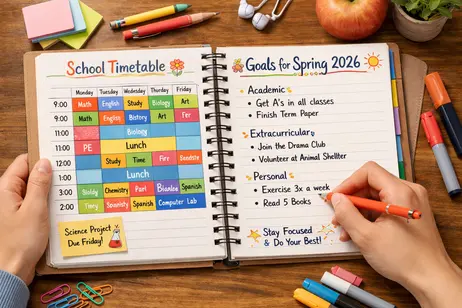 School Timetable
Monday Tuesday Wednesday Thursday Friday
9:00 Math English Study Biology Art
9:00 Math English Art Fer
11:00 Biology
11:00 PE Lunch
12:00 Study Time
1:00 Lunch
3:00 Chemistry Part Spanish
2:00 Spanish Computer Lab
Science Project
Due Friday!
Goals for Spring 2026
Academic
• Get A's in all classes
• Finish Term Paper
Extracurricular
• Join the Drama Club
• Volunteer at Animal Shelter
Personal
• Exercise 3x a week
• Read 5 Books
Stay Focused
& Do Your Best!